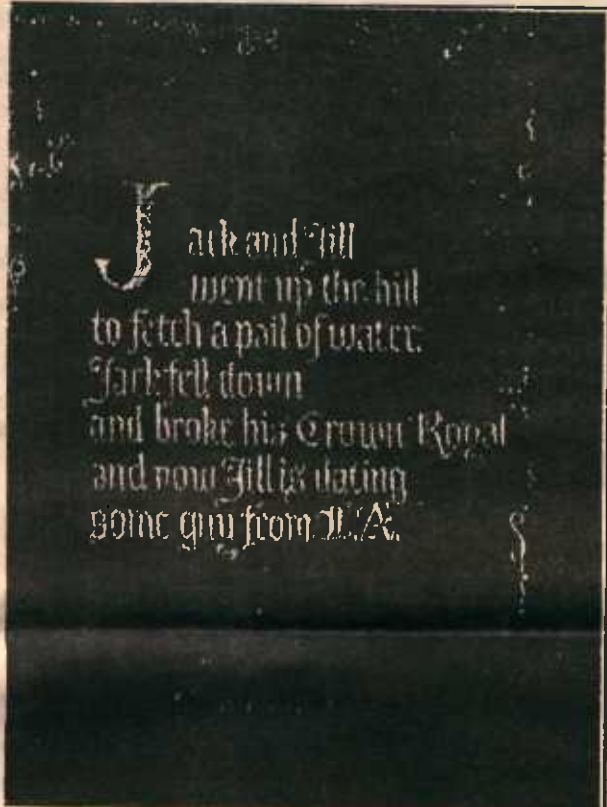 Jack and Jill
went up the hill
to fetch a pail of water.
Jack fell down
and broke his Crown Royal
and now Jill is dating
some guy from L.A.